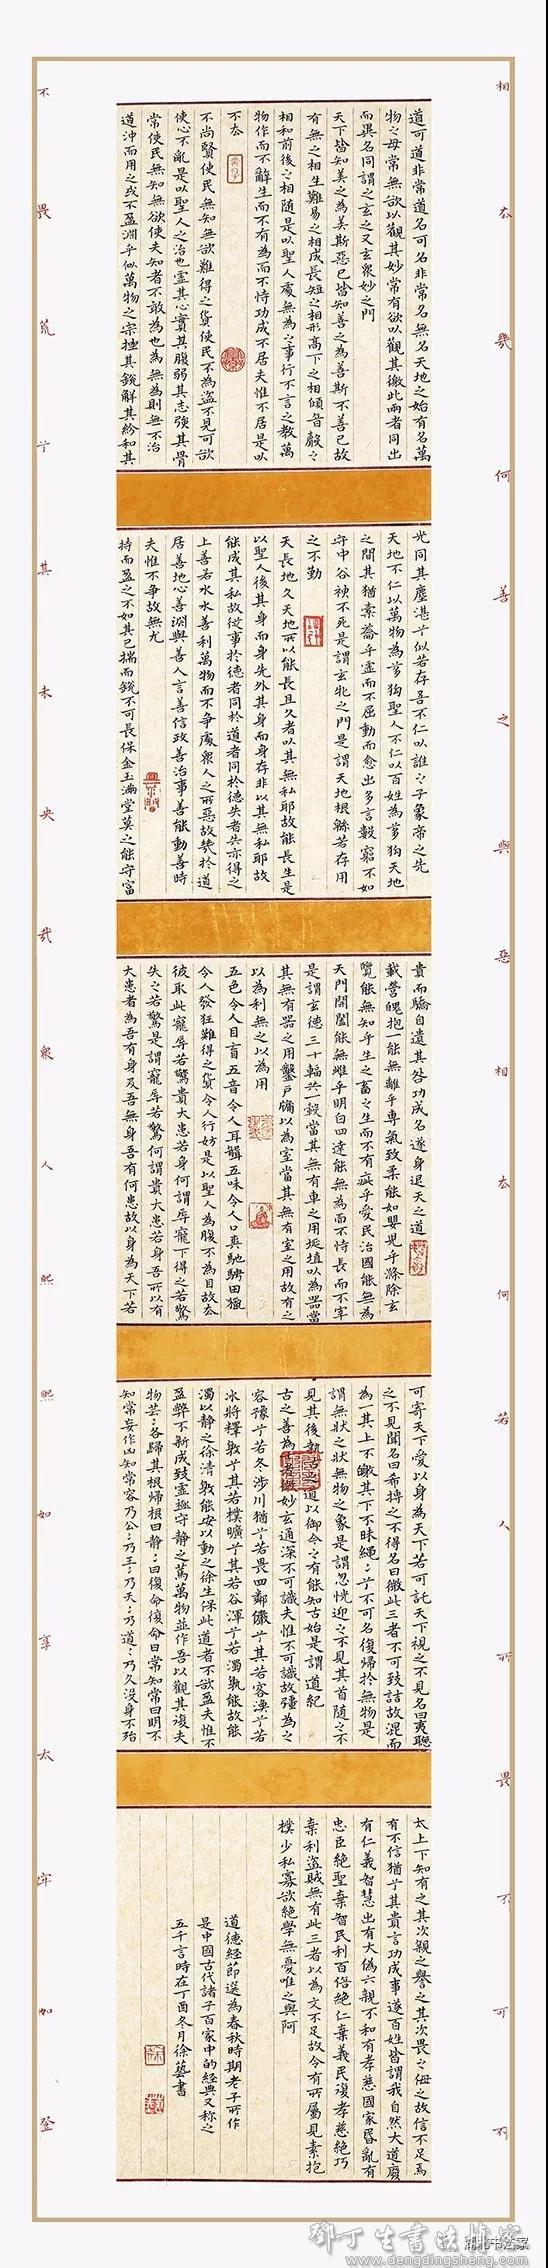 相去幾何善之與惡相去何若人所畏不可不
道可道非常道名可名非常名無名天地之始有名萬
物之母常無欲以觀其妙常有欲以觀其徼此兩者同出
而異名同謂之玄之又玄眾妙之門
天下皆知美之為美斯惡已皆知善之為善斯不善已故
有無之相生難易之相成長短之相形高下之相傾音聲之
相和前後之相隨是以聖人處無為之事行不言之教萬
物作而不辭生而不有為而不恃功成不居夫惟不居是以
不去
不尚賢使民無知無欲難得之貨使民不為盜不見可欲
使心不亂是以聖人之治也虛其心實其腹弱其志強其骨
常使民無知無欲使夫知者不敢為也為無為則無不治
道沖而用之或不盈淵乎似萬物之宗挫其銳解其紛和其
光同其塵湛兮似若存吾不仁以誰之子象帝之先
天地不仁以萬物為芻狗聖人不仁以百姓為芻狗天地
之間其猶橐籥乎虛而不屈動而愈出多言數窮不如
守中谷神不死是謂玄牝之門是謂天地根緜若存用
之不勤
天長地久天地所以能長且久者以其無私耶故能長生是
以聖人後其身而身先外其身而身存非以其無私耶故
能成其私故從事於德者同於道者同於德失者失亦得之
上善若水水善利萬物而不争處眾人之所惡故幾於道
居善地心善淵與善人言善信政善治事善能動善時
夫惟不争故無尤
持而盈之不如其已揣而銳不可長保金玉滿堂莫之能守富
貴而驕自遺其咎功成名遂身退天之道
載營魄抱一能無離乎專氣致柔能如嬰兒乎滌除玄
覽能無知乎生之畜之生而不有疵乎愛民治國能無為
天門開闔能無雌乎明白四達能無為而不恃長而不宰
是謂玄德三十輻共一轂當其無有車之用埏埴以為器當
其無有器之用鑿戶牖以為室當其無有室之用故有之
以為利無之以為用
五色令人目盲五音令人耳聾五味令人口爽馳騁田獵
令人發狂難得之貨令人行妨是以聖人為腹不為目故去
彼取此寵辱若驚貴大患若身何謂辱寵下得之若驚
失之若驚是謂寵辱若驚何謂貴大患若身吾所以有
大患者為吾有身及吾無身吾有何患故以身為天下若
可寄天下愛以身為天下若可託天下視之不見名曰夷聽
之不見聞名曰希摶之不得名曰微此三者不可致詰故混而
為一其上不皦其下不昧繩繩兮不可名復歸於無物是
謂無狀之狀無物之象是謂忽恍迎之不見其首隨之不
見其後執古之道以御今之有能知古始是謂道紀
古之善為者微妙玄通深不可識夫惟不可識故強為之
容豫兮若冬涉川猶兮若畏四鄰儼兮其若容渙兮若
冰將釋敦兮其若樸曠兮其若谷渾兮若濁孰能故能
濁以靜之徐清孰能安以動之徐生保此道者不欲盈夫惟不
盈弊不新成致虛極守靜之篤萬物並作吾以觀其復夫
物芸芸各歸其根歸根曰靜靜曰復命復命曰常知常曰明不
知常妄作凶知常容乃公乃王乃天乃道乃久沒身不殆
太上下知有之其次親之譽之其次畏之侮之故信不足焉
有不信猶兮其貴言功成事遂百姓皆謂我自然大道廢
有仁義智慧出有大偽六親不和有孝慈國家昏亂有
忠臣絕聖棄智民利百倍絕仁棄義民復孝慈絕巧
棄利盜賊無有此三者以為文不足故令有所屬見素抱
樸少私寡欲絕學無憂唯之與阿
道德經節選為春秋時期老子所作
是中國古代諸子百家中的經典又稱之
五千言時在丁酉冬月徐藝書
不畏荒兮其未央哉眾人熙熙如享太牢如登
鄧丁生書法博客
www.dengdingsheng.com
湖北书法家